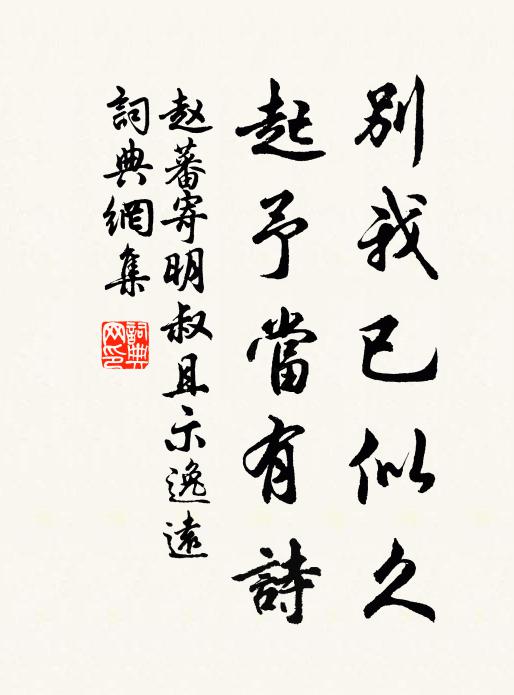 別我已似久
起予當有詩
赵蕃寄明叔且示逸遠
詞典網集
詞典網印